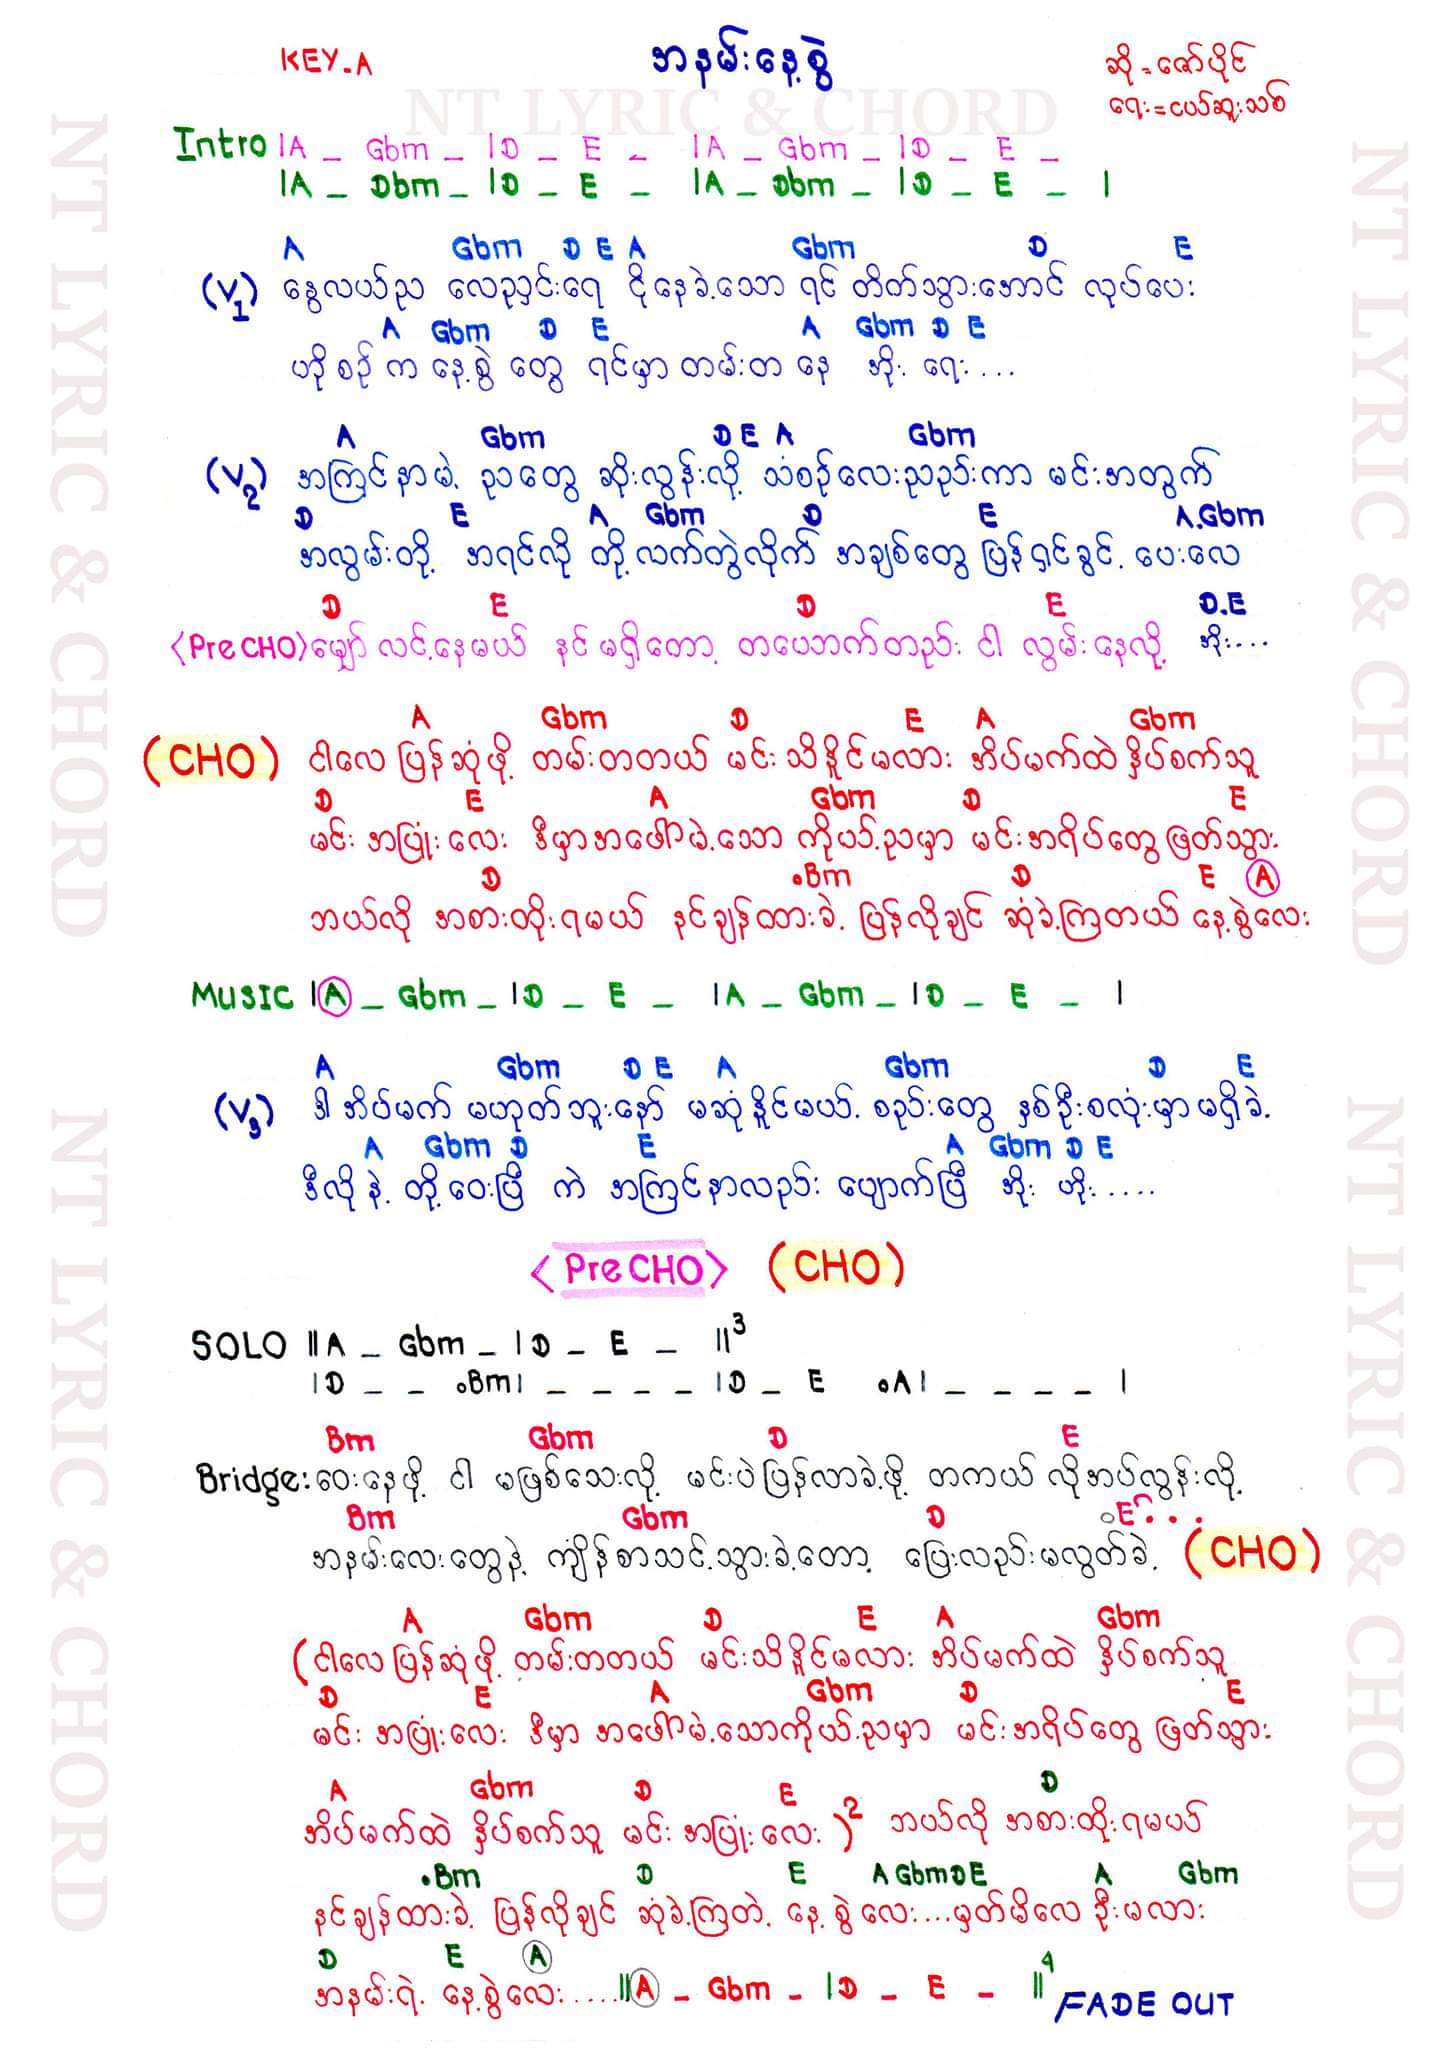 KEY-A
အနမ်းနေ့စွဲ
ဆို = ဇော်ပိုင်
ရေး = ငယ်ဆူးသစ်
NT LYRIC & CHORD
Intro |A _ Gbm _ |D _ E _ |A _ Gbm _ |D _ E _
|A _ Dbm _ |D _ E _ |A _ Dbm _ |D _ E _ |
A Gbm D E A Gbm D E
(V1) နွေလယ်ည လေညှင်းရေ ငိုနေခဲ့သော ရင် တိက်သွားအောင် လုပ်ပေး
A Gbm D E A Gbm D E
ဟိုစဉ် က နေ့စွဲ တွေ ရင်မှာ တမ်းတ နေ အိုး ရေး ...
A Gbm D E A Gbm
(V2) အကြင်နာမဲ့ ညတွေ ဆိုးလွန်းလို့ သံစဉ်လေးညည်းကာ မင်းအတွက်
D E A Gbm D E A.Gbm
အလွမ်းတို့ အရင်လို တို့လက်တွဲလိုက် အချစ်တွေ ပြန်ရှင်ခွင့် ပေးလေ
D E D E D.E
<Pre CHO> မျှော်လင့်နေမယ် နင်မရှိတော့ တပေဘက်တည်း ငါ လွမ်းနေလို့ အိုး...
A Gbm D E A Gbm
(CHO) ငါလေ ပြန်ဆုံဖို့ တမ်းတတယ် မင်းသိနိုင်မလား အိပ်မက်ထဲ နှိပ်စက်သူ
D E A Gbm D E
မင်း အပြုံးလေး ဒီမှာအဖေါ်မဲ့သော ကိုယ့်ညမှာ မင်းအရိပ်တွေ ဖြတ်သွား
D .Bm D E A
ဘယ်လို အစားထိုးရမယ် နင်ချန်ထားခဲ့ ပြန်လိုချင် ဆုံခဲ့ကြတယ် နေ့စွဲလေး
MUSIC |A _ Gbm _ |D _ E _ |A _ Gbm _ |D _ E _ |
A Gbm D E A Gbm D E
(V3) ဒါအိပ်မက် မဟုတ်ဘူးနော် မဆုံနိုင်မယ့် စည်းတွေ နှစ်ဦးစလုံးမှာမရှိခဲ့
A Gbm D E A Gbm D E
ဒီလိုနဲ့ တို့ဝေးပြီ ကဲ အကြင်နာလည်း ပျောက်ပြီ အိုး ဟိုး.....
<Pre CHO> (CHO)
SOLO ||A _ Gbm _ |D _ E _ ||3
|D _ _ .Bm| _ _ _ _ |D _ E .A| _ _ _ _ |
Bm Gbm D E
Bridge: ဝေးနေဖို့ ငါ မဖြစ်သေးလို့ မင်းပဲပြန်လာခဲ့ဖို့ တကယ်လိုအပ်လွန်းလို့
Bm Gbm D .E ...
အနမ်းလေးတွေနဲ့ ကျိန်စာသင့်သွားခဲ့တော့ ပြေးလည်းမလွတ်ခဲ့ (CHO)
A Gbm D E A Gbm
(ငါလေပြန်ဆုံဖို့ တမ်းတတယ် မင်းသိနိုင်မလား အိပ်မက်ထဲ နှိပ်စက်သူ
D E A Gbm D E
မင်း အပြုံးလေး ဒီမှာ အဖေါ်မဲ့သောကိုယ့်ညမှာ မင်းအရိပ်တွေ ဖြတ်သွား
A Gbm D E D
အိပ်မက်ထဲ နှိပ်စက်သူ မင်း အပြုံးလေး )2 ဘယ်လို အစားထိုးရမယ်
.Bm D E A Gbm D E A Gbm
နင်ချန်ထားခဲ့ ပြန်လိုချင် ဆုံခဲ့ကြတဲ့ နေ့စွဲလေး....မှတ်မိလေ ဦးမလား
D E A
အနမ်းရဲ့ နေ့စွဲလေး.....||A _ Gbm _ |D _ E _ ||4
FADE OUT
NT LYRIC & CHORD
NT LYRIC & CHORD
NT LYRIC & CHORD
NT LYRIC & CHORD